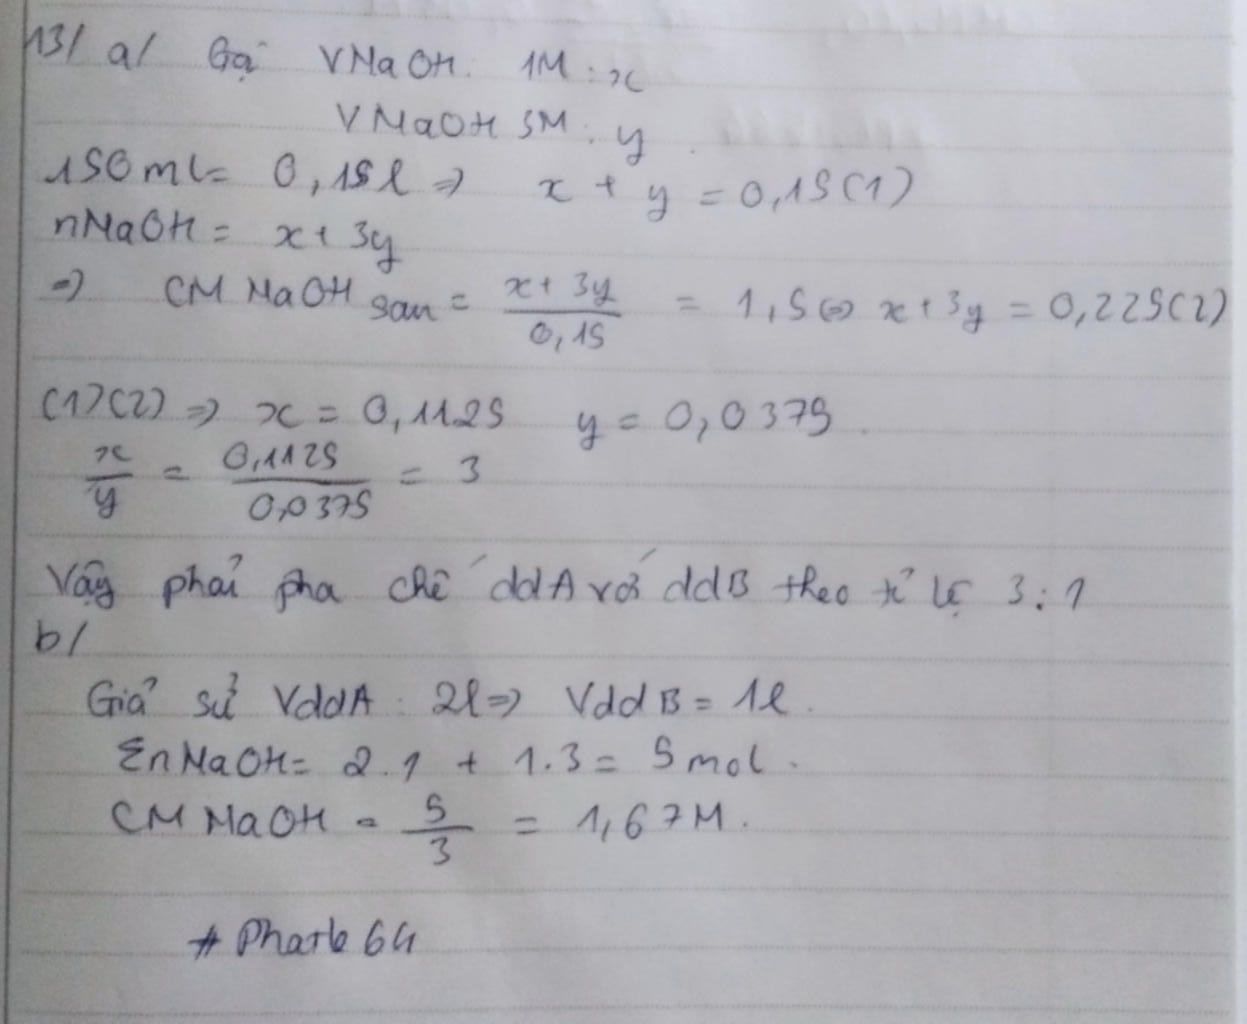 13/ a/ Gọi VNaOH 1M: x
VNaOH 3M: y
150ml = 0,15l => x + y = 0,15(1)
nNaOH = x + 3y
=> CM NaOH sau = (x + 3y)/0,15 = 1,5 <=> x + 3y = 0,225(2)
(1)(2) => x = 0,1125 y = 0,0375
x/y = 0,1125/0,0375 = 3
Vậy phải pha chế ddA với ddB theo tỉ lệ 3:1
b/
Giả sử VddA: 2l => VddB = 1l.
ΣnNaOH = 2.1 + 1.3 = 5 mol.
CM NaOH = 5/3 = 1,67M.